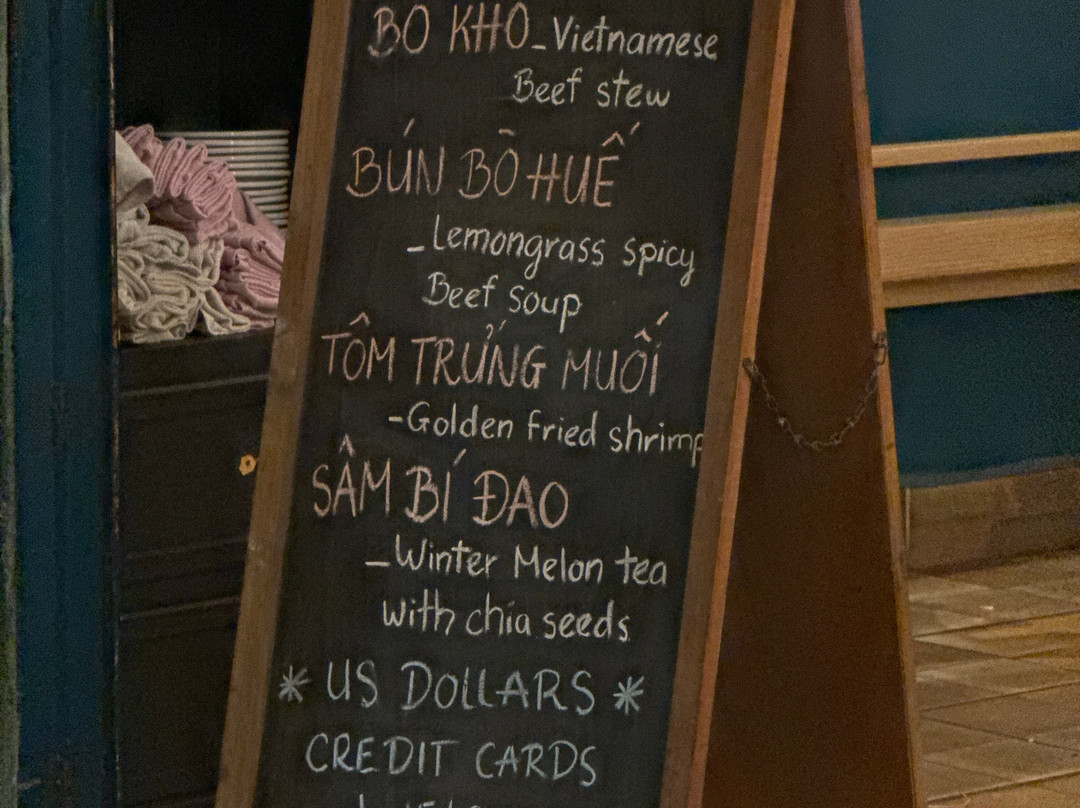 BÒ KHO_Vietnamese
Beef stew
BÚN BÒ HUẾ
_Lemongrass spicy
Beef soup
TÔM TRỨNG MUỐI
-Golden fried shrimp
SÂM BÍ ĐAO
_Winter Melon tea
with chia seeds
* US DOLLARS *
CREDIT CARDS